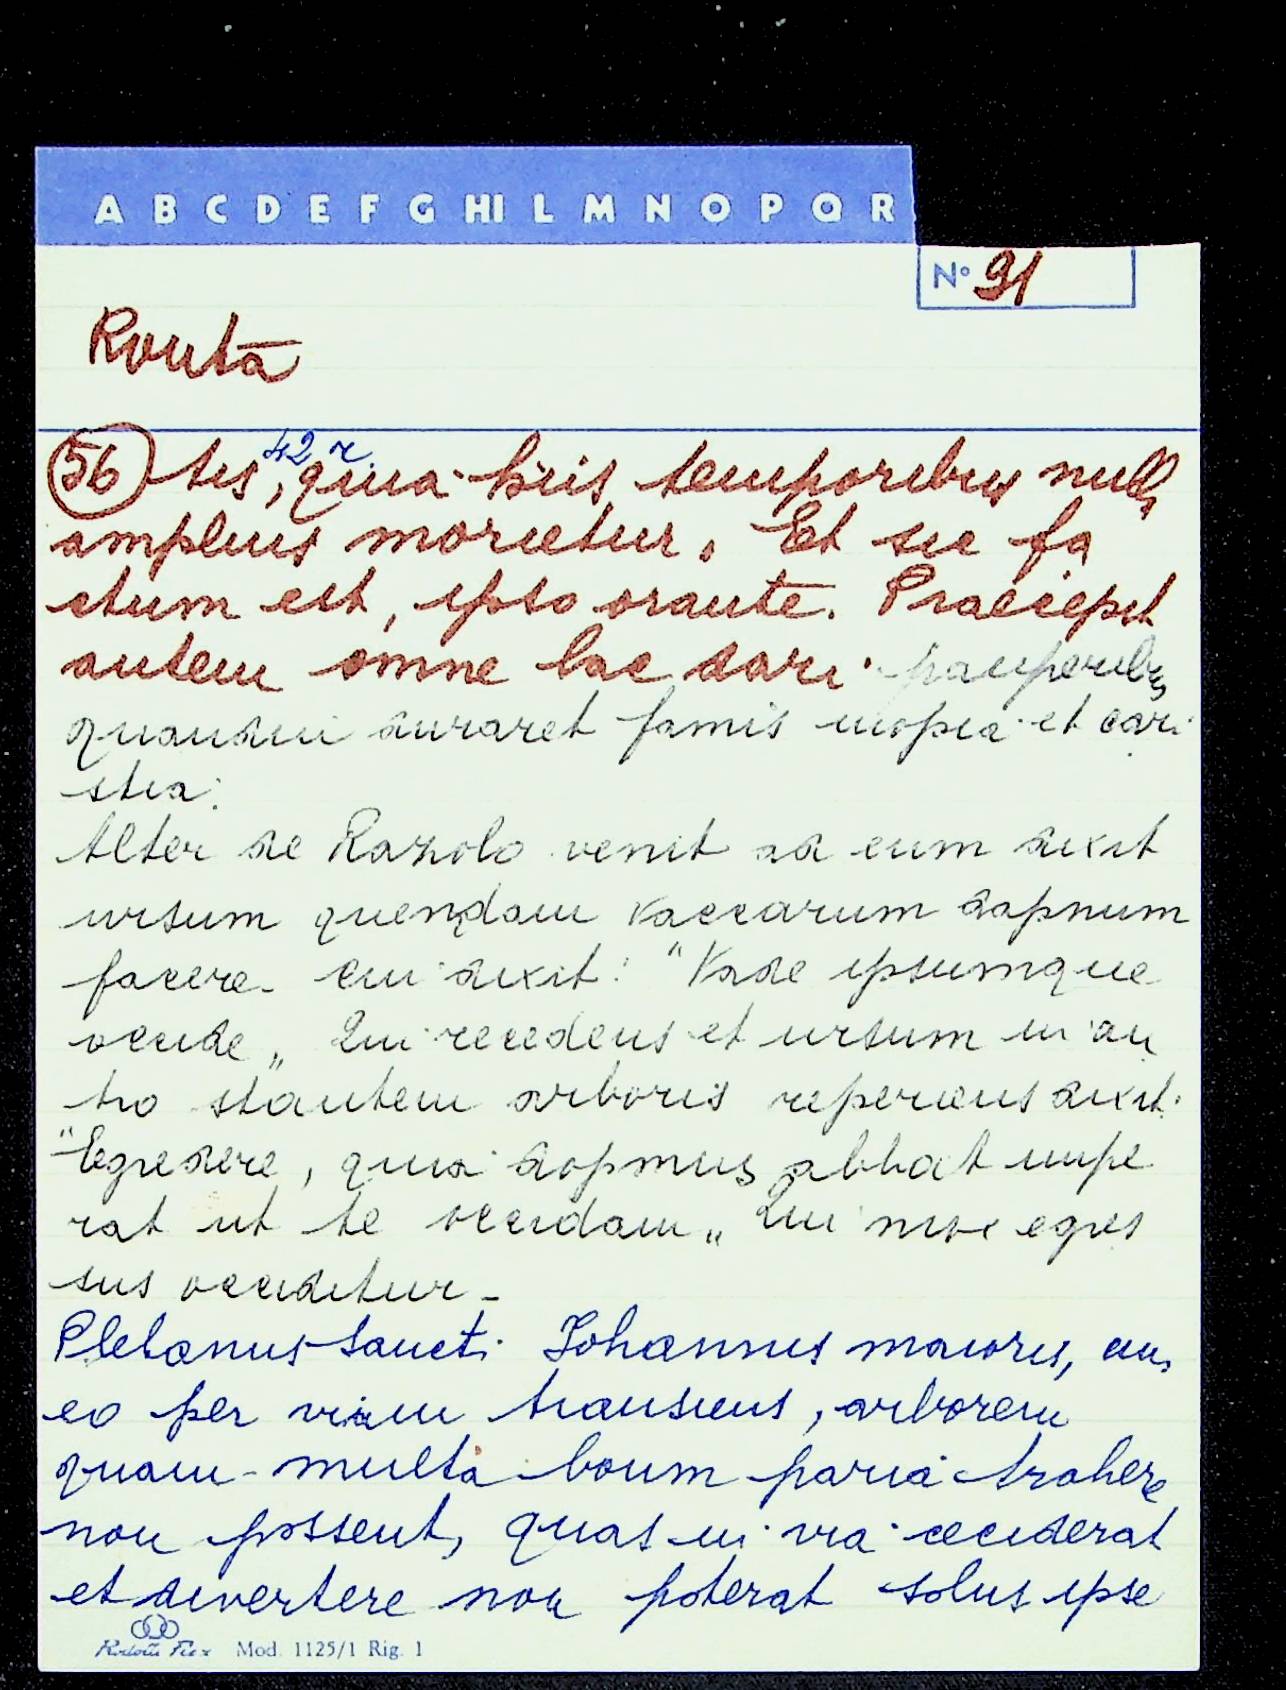 A B C D E F G HI L M N O P Q R
N° 91
Routa
56 tis, quia his temporibus null,
42 r.
amplius morietur. Et sic fa
ctum est, ipso orante. Praecepit
autem omne lac dari pauperibus
quandiu duraret famis inopia et cari
stia.
Alter de Razolo venit ad eum dixit
ursum quendam vaccarum dapnum
facere - cui dixit: "Vade ipsumque
occide„ Qui recedens et ursum in an
tro stantem arboris reperiens dixit:
"Egredere, quia dopmus abbat impe
rat ut te occidam„ Qui mox egres
sus occiditur -
Plebanus Sancti Johannis maioris, cum
eo per viam transiens, arborem
quam - multa boum paria trahere
non possent, quas in via ceciderat
et divertere non poterat solus ipse
Mod. 1125/1 Rig. 1